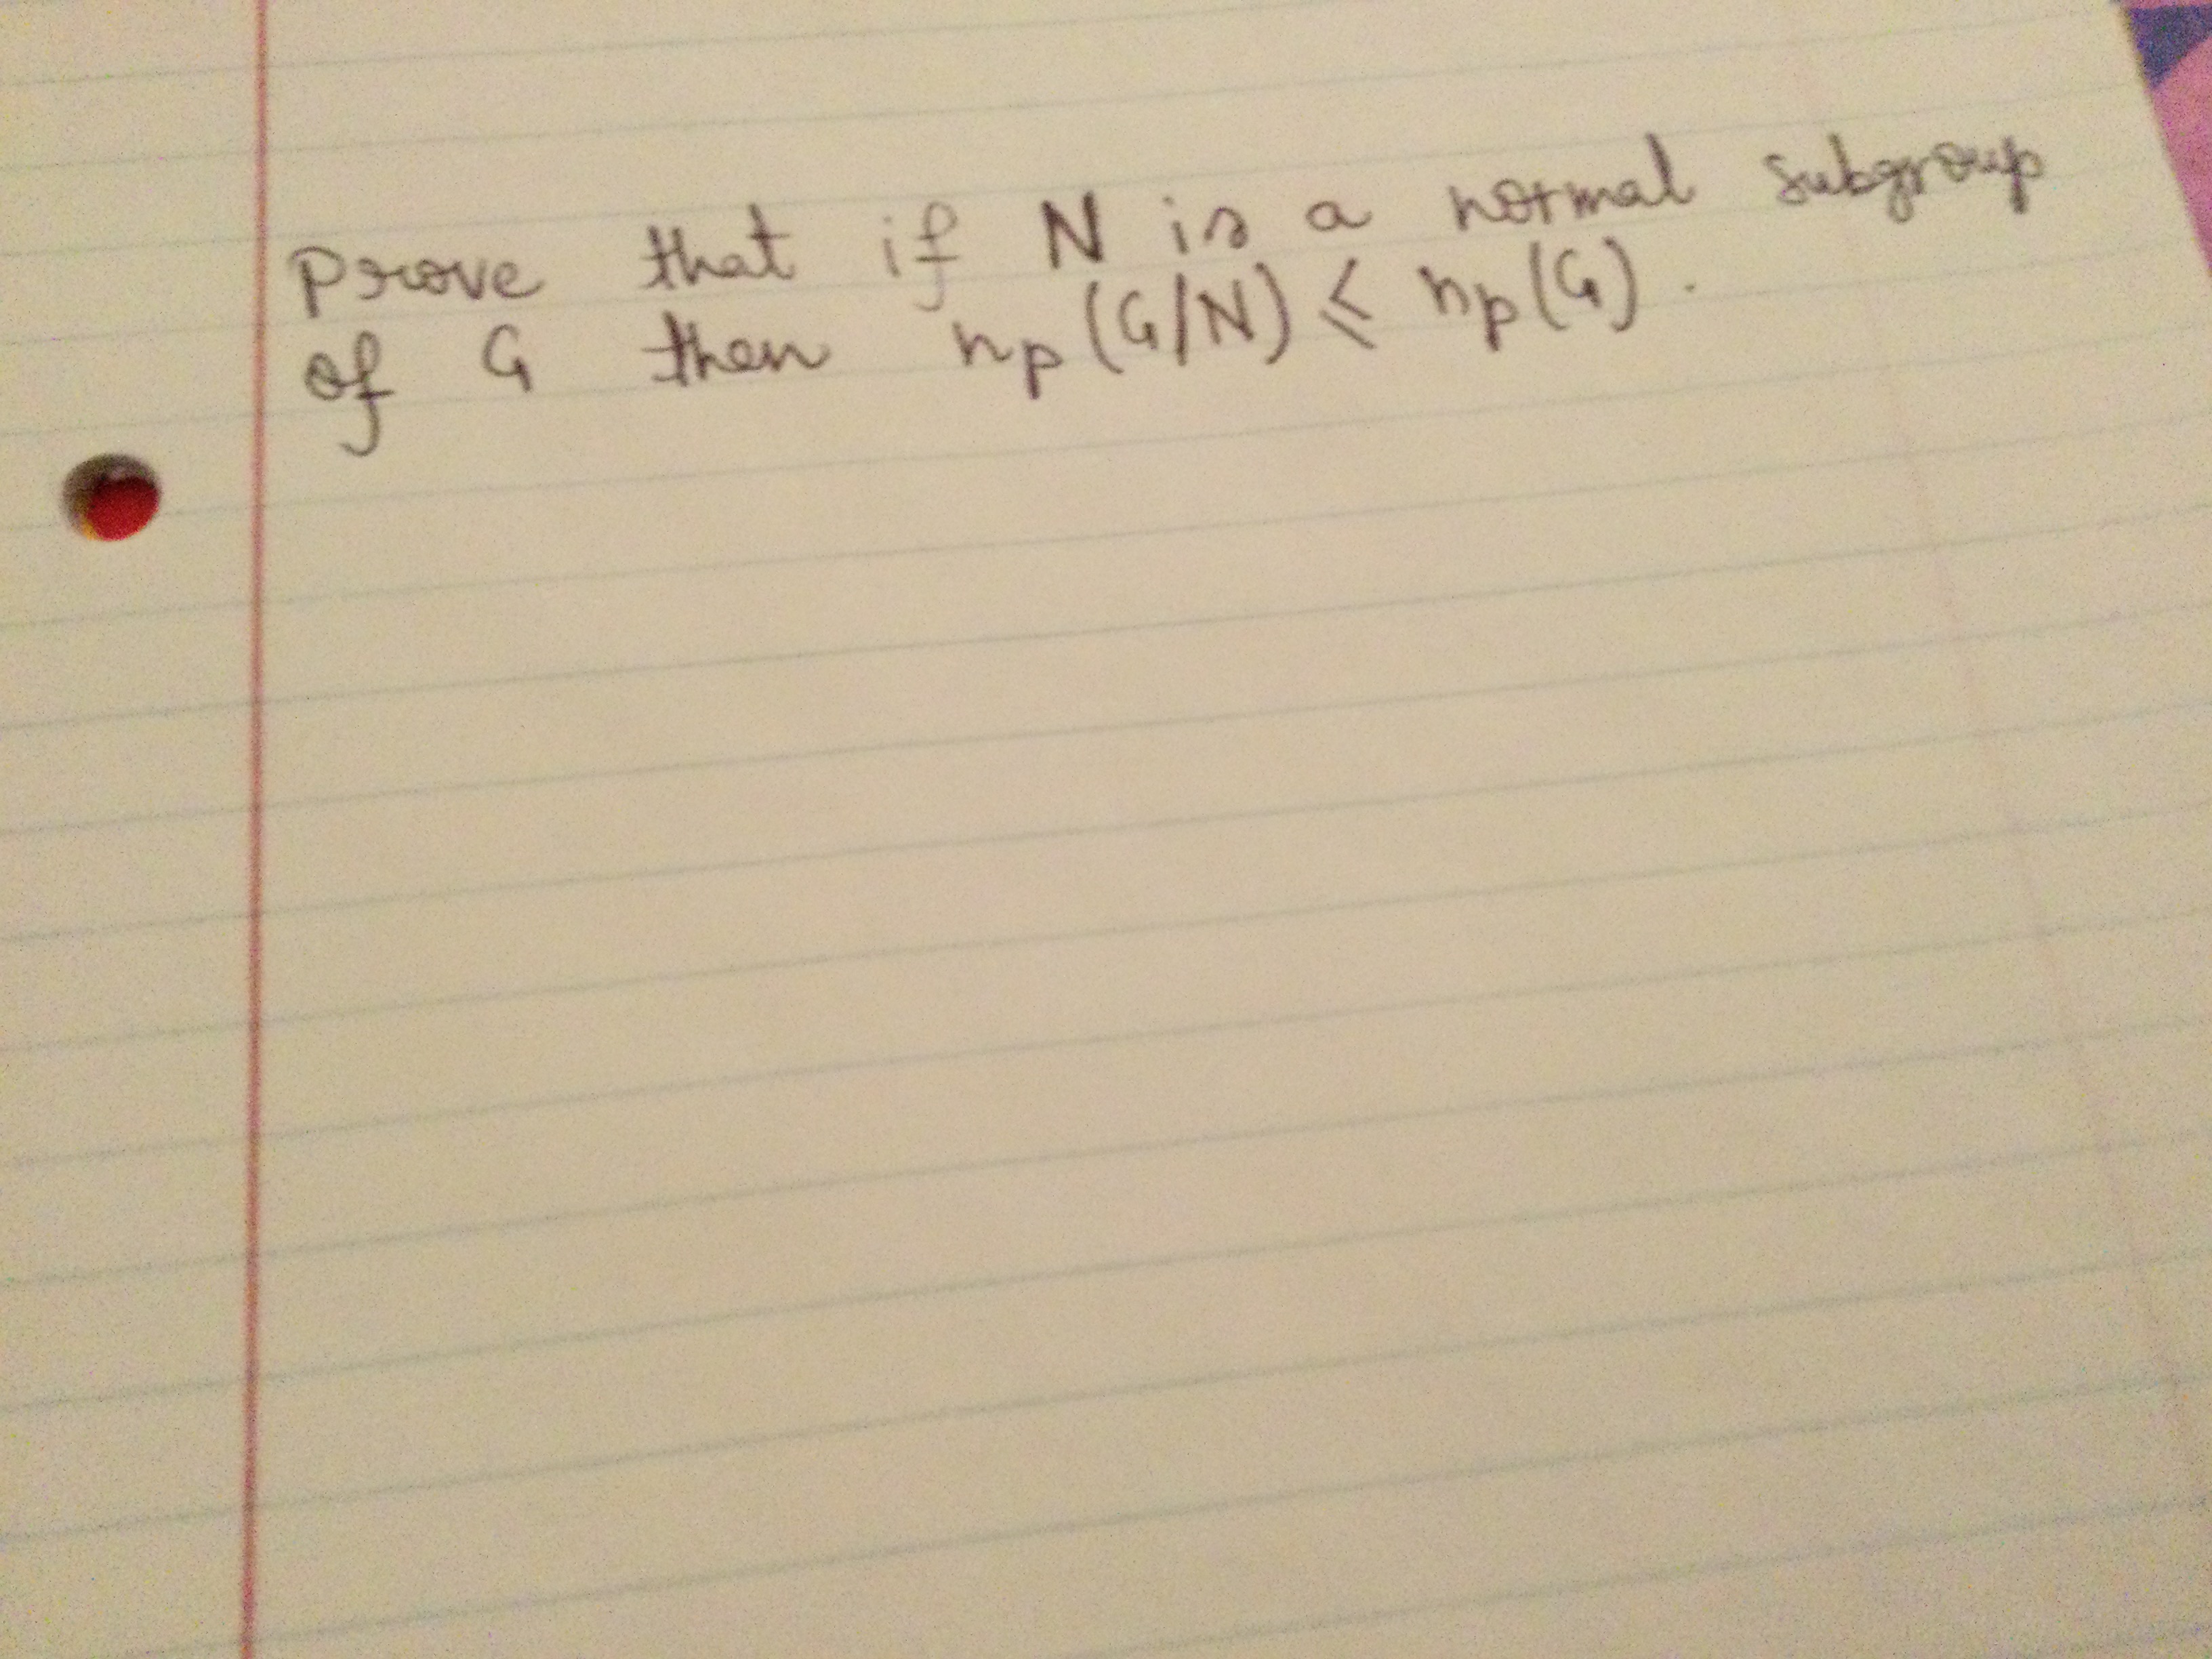 Prove that if N is a normal subgroup
of G then np(G/N) ⩽ np(G).